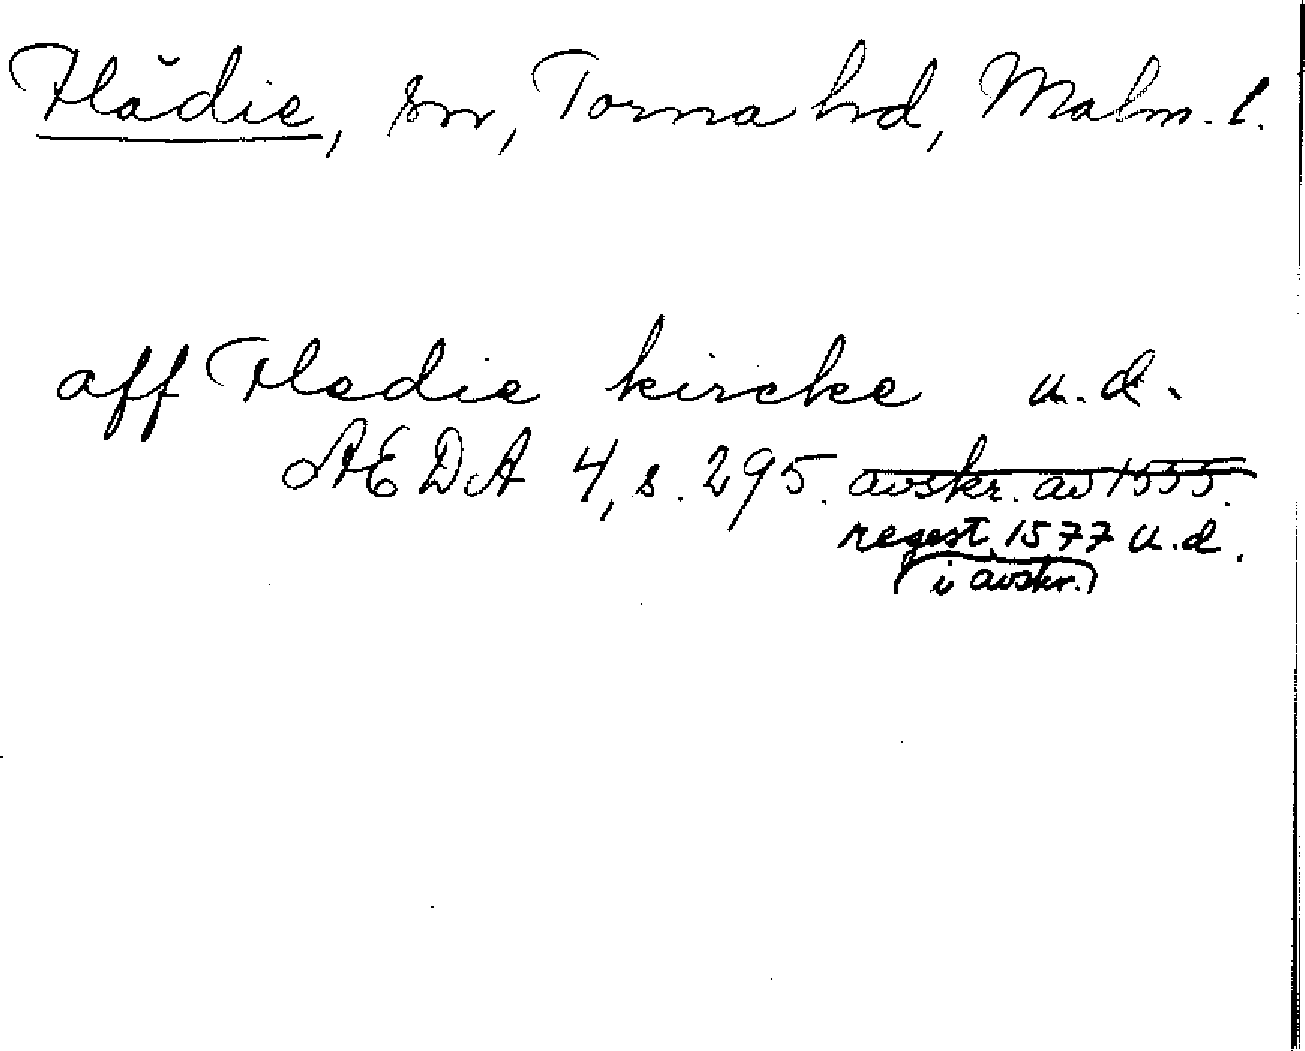 Flädie, sn, Torna hd, Malm. l.
aff Fledie kircke u.d.
ÆDA 4, s. 295. avskr. av 1555.
regest. 1577 u.d.
(i avskr.)